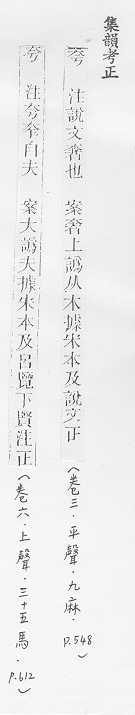 集韻考正
夸 注說文奢也 案奢上譌从木據宋本及說文正（卷三．平聲．九麻．P.548）
夸 注夸奢自夫 案大譌夫據宋本及呂覽下賢注正（卷六．上聲．三十五馬．P.612）